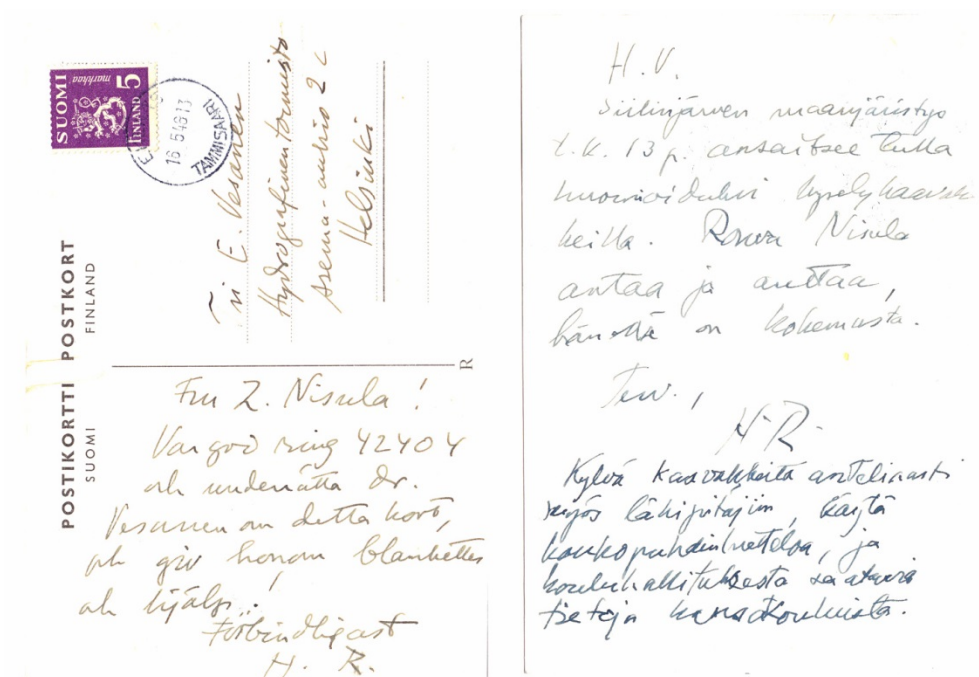 SUOMI
markkaa
5
FINLAND
16. 5 46 13
TAMMISAARI
Tri E. Vesanen
Hydrografinen toimisto
Asema-aukio 2 c
Helsinki
POSTIKORTTI POSTKORT
SUOMI FINLAND
R
Fru Z. Nisula!
Var god ring 42404
och underrätta dr.
Vesanen om detta kort,
och giv honom blanketter
och hjälp..!
Förbindligast
H. R.
H.V.
Siilinjärven maanjäristys
t.k. 13 p. ansaitsee tulla
huomioiduksi kyselykaavak-
keilla. Rouva Nisula
antaa ja auttaa,
hänellä on kokemusta.
Terv.,
H-R-
Kylvä kaavakkeita anteliaasti
myös lähipitäjiin, käytä
kaukopuhdinluetteloa, ja
kouluhallituksesta saatavia
tietoja kansakouluista.